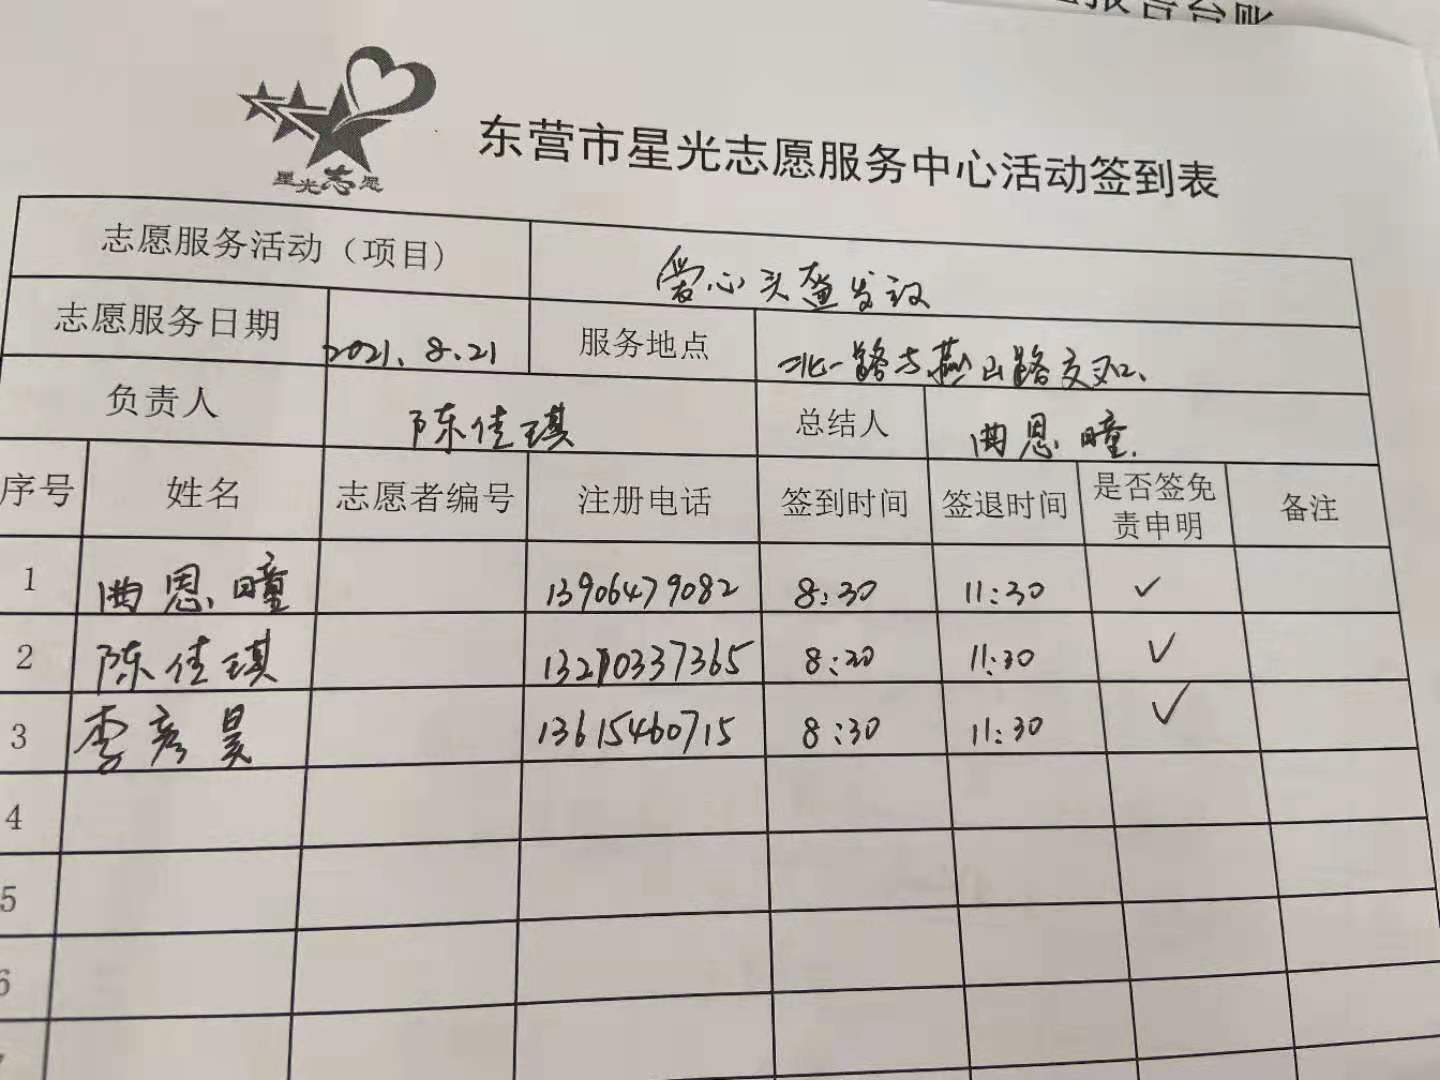 报告台账
星光志愿
东营市星光志愿服务中心活动签到表
志愿服务活动（项目） 爱心头盔发放
志愿服务日期 2021.8.21 服务地点 北一路与燕山路交叉口、
负责人 陈佳琪 总结人 曲恩瞳.
序号 姓名 志愿者编号 注册电话 签到时间 签退时间 是否签免责申明 备注
1 曲恩瞳 13906479082 8:30 11:30 ✓
2 陈佳琪 13210337365 8:30 11:30 ✓
3 李彦昊 13615460715 8:30 11:30 ✓
4
5
6